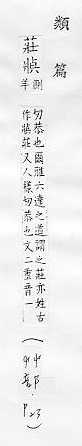 類篇
莊
側羊
切恭也爾雅六達之道謂之莊亦姓古
作莊又人樣切恭也文二重音一
P.23